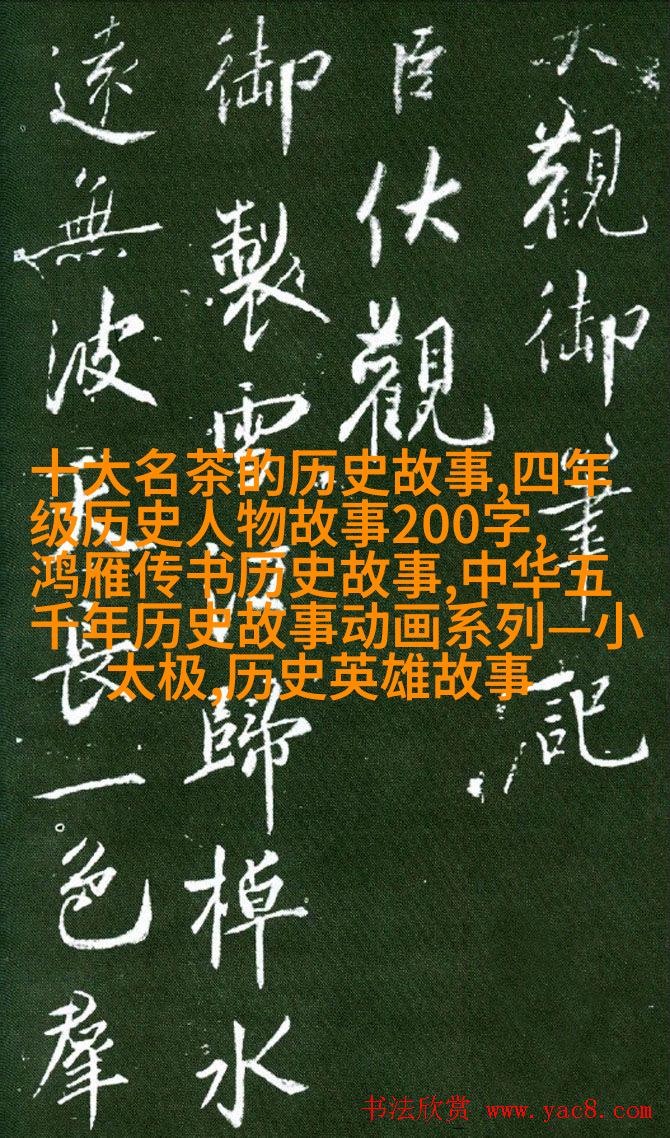 大觀御筆記
臣伏觀
御製雪江歸棹水
遠無波天長一色羣
十大名茶的历史故事,四年
级历史人物故事200字,
鸿雁传书历史故事,中华五
千年历史故事动画系列—小
太极,历史英雄故事
书法欣赏 www.yac8.com